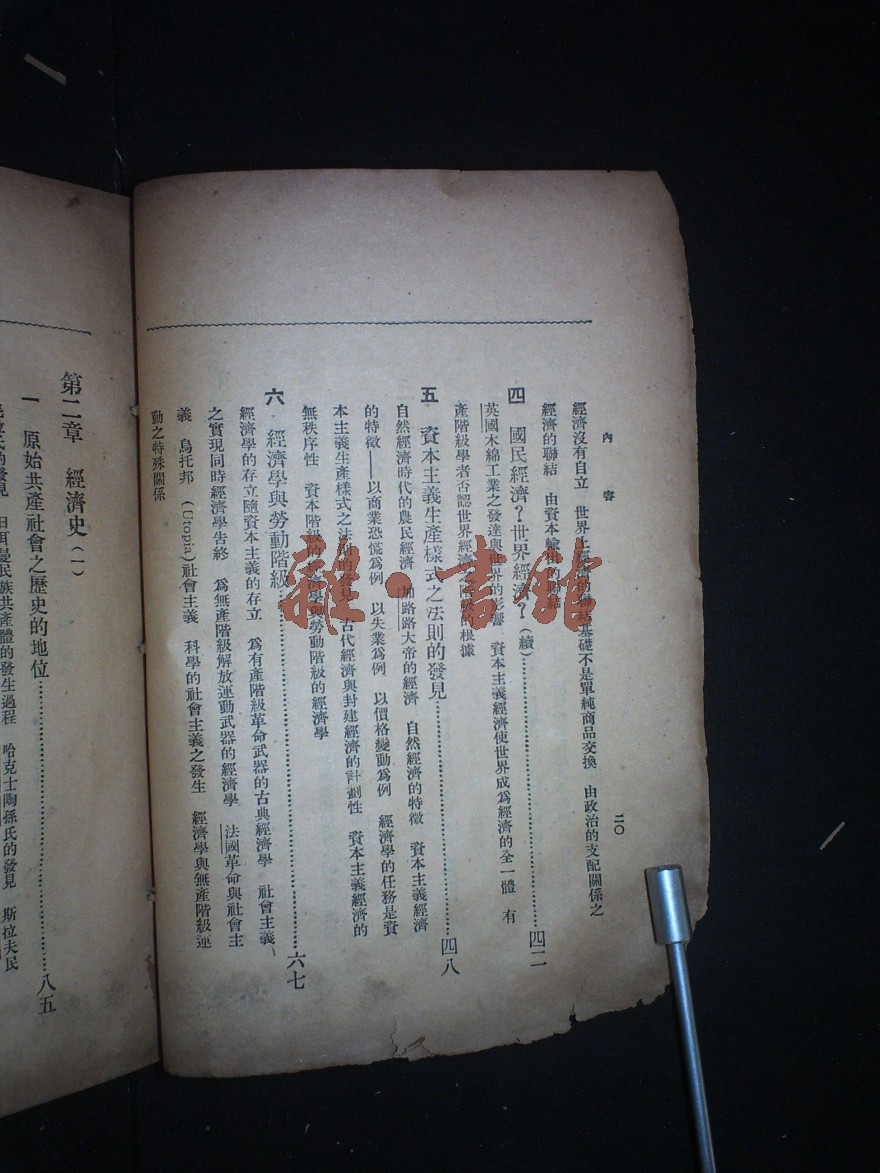 內容
二〇
經濟沒有自立 世界上 基礎不是單純商品交換 由政治的支配關係之
經濟的聯結 由資本輸出的聯結
四 國民經濟？世界經濟？（續）……四二
英國木綿工業之發達與世界的影響 資本主義經濟使世界成爲經濟的全一體 有
產階級學者否認世界經濟 的根據
五 資本主義生產樣式之法則的發見……四八
自然經濟時代的農民經濟 加路路大帝的經濟 自然經濟的特徵 資本主義經濟
的特徵——以商業恐慌爲例 以失業爲例 以價格變動爲例 經濟學的任務是資
本主義生產樣式之法則的發見 古代經濟與封建經濟的計劃性 資本主義經濟的
無秩序性 資本階級的經濟學與勞動階級的經濟學
六 經濟學與勞動階級……六七
經濟學的存立隨資本主義的存立 爲有產階級革命武器的古典經濟學 社會主義
之實現同時經濟學告終 爲無產階級解放運動武器的經濟學 法國革命與社會主
義 烏托邦（Utopia）社會主義 科學的社會主義之發生 經濟學與無產階級運
動之特殊關係
第二章 經濟史（一）
一 原始共產社會之歷史的地位……八五
的發見 日耳曼民族共產體的發生過程 哈克士陶孫氏的發見 斯拉夫民
雜·書館